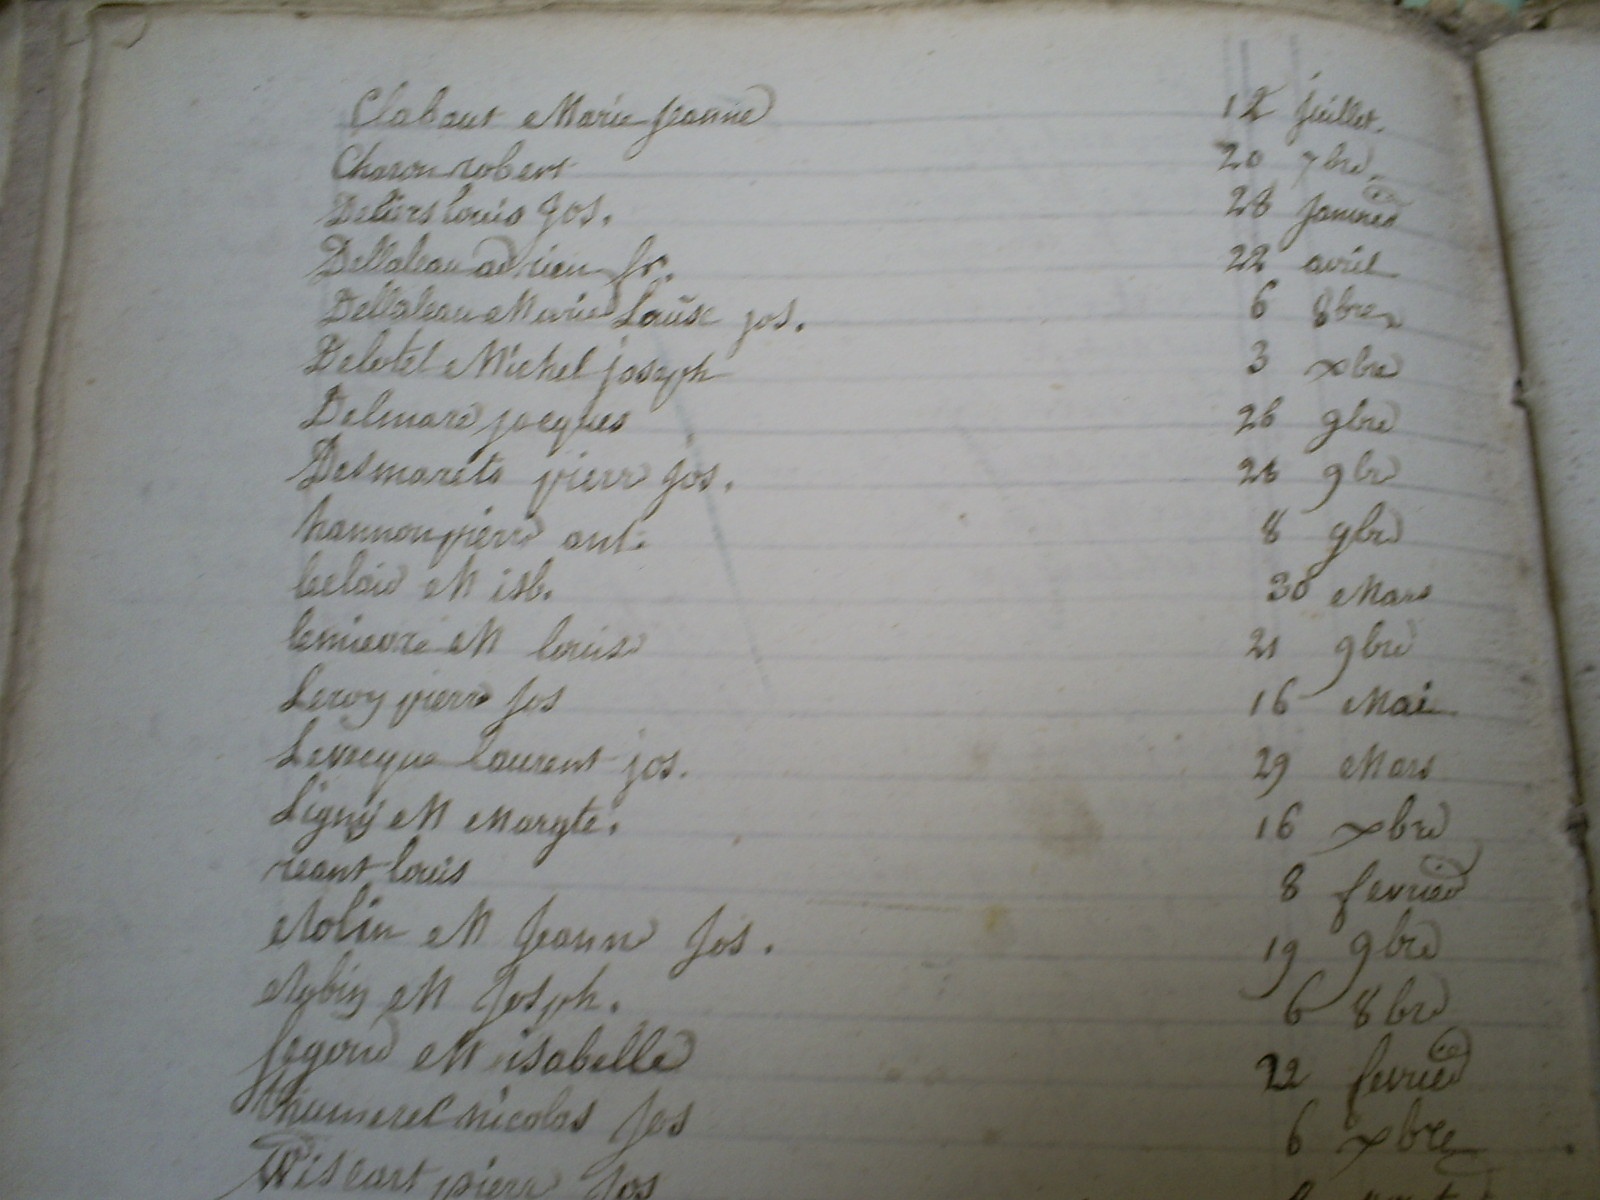 Clabaut Marie Jeanne 12 juillet.
Charon robert 20 7bre.
Deliers louis Jos. 28 janvier
Dellaleau adrien fr. 22 avril
Dellaleau Marie Louise jos. 6 8bre
Delotel Michel joseph 3 xbre
Delmare jacques 26 9bre
Desmarets pierre Jos. 28 9br
hannon pierre ant. 8 9bre
M isb. 30 Mars
lemievre M louise 21 9bre
Leroy pierre Jos 16 Mai
Levecque laurent jos. 29 Mars
Ligny M Margte. 16 xbre
reant louis 8 fevrier
M Jeanne Jos. 19 9bre
M Joseph. 6 8bre
segond M isabelle 22 fevrier
thumerel nicolas Jos 6 xbre
Wiscart pierre Jos